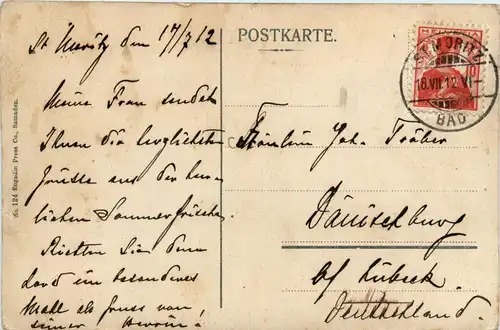 POSTKARTE.
St Moritz den 17/7 12
Meine Frau sendet
Ihnen die herzlichsten
Grüsse aus der herr-
lichen Sommerfrische.
Richten Sie dem
ein besonderes
als Gruss von
seiner
Fräulein Joh. Träber
Dänischburg
bf Lübeck.
Deutschland.
HELVETIA
ST. MORITZ
18.VII.12.VI
BAD
No. 124 Engadin Press Co., Samaden.